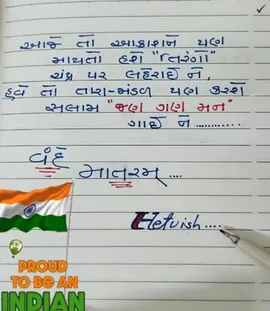 આજે તો આકાશને પણ
માયતો હશે "તિરંગો"
ચંદ્ર પર લહેરાઈ ને,
હવે તો તારા-મંડળ પણ કરશે
સલામ "જણ ગણ મન"
ગાઈ ને ...........
વંદે
માતરમ્ ....
Hetvish ....
PROUD
TO BE AN
INDIAN